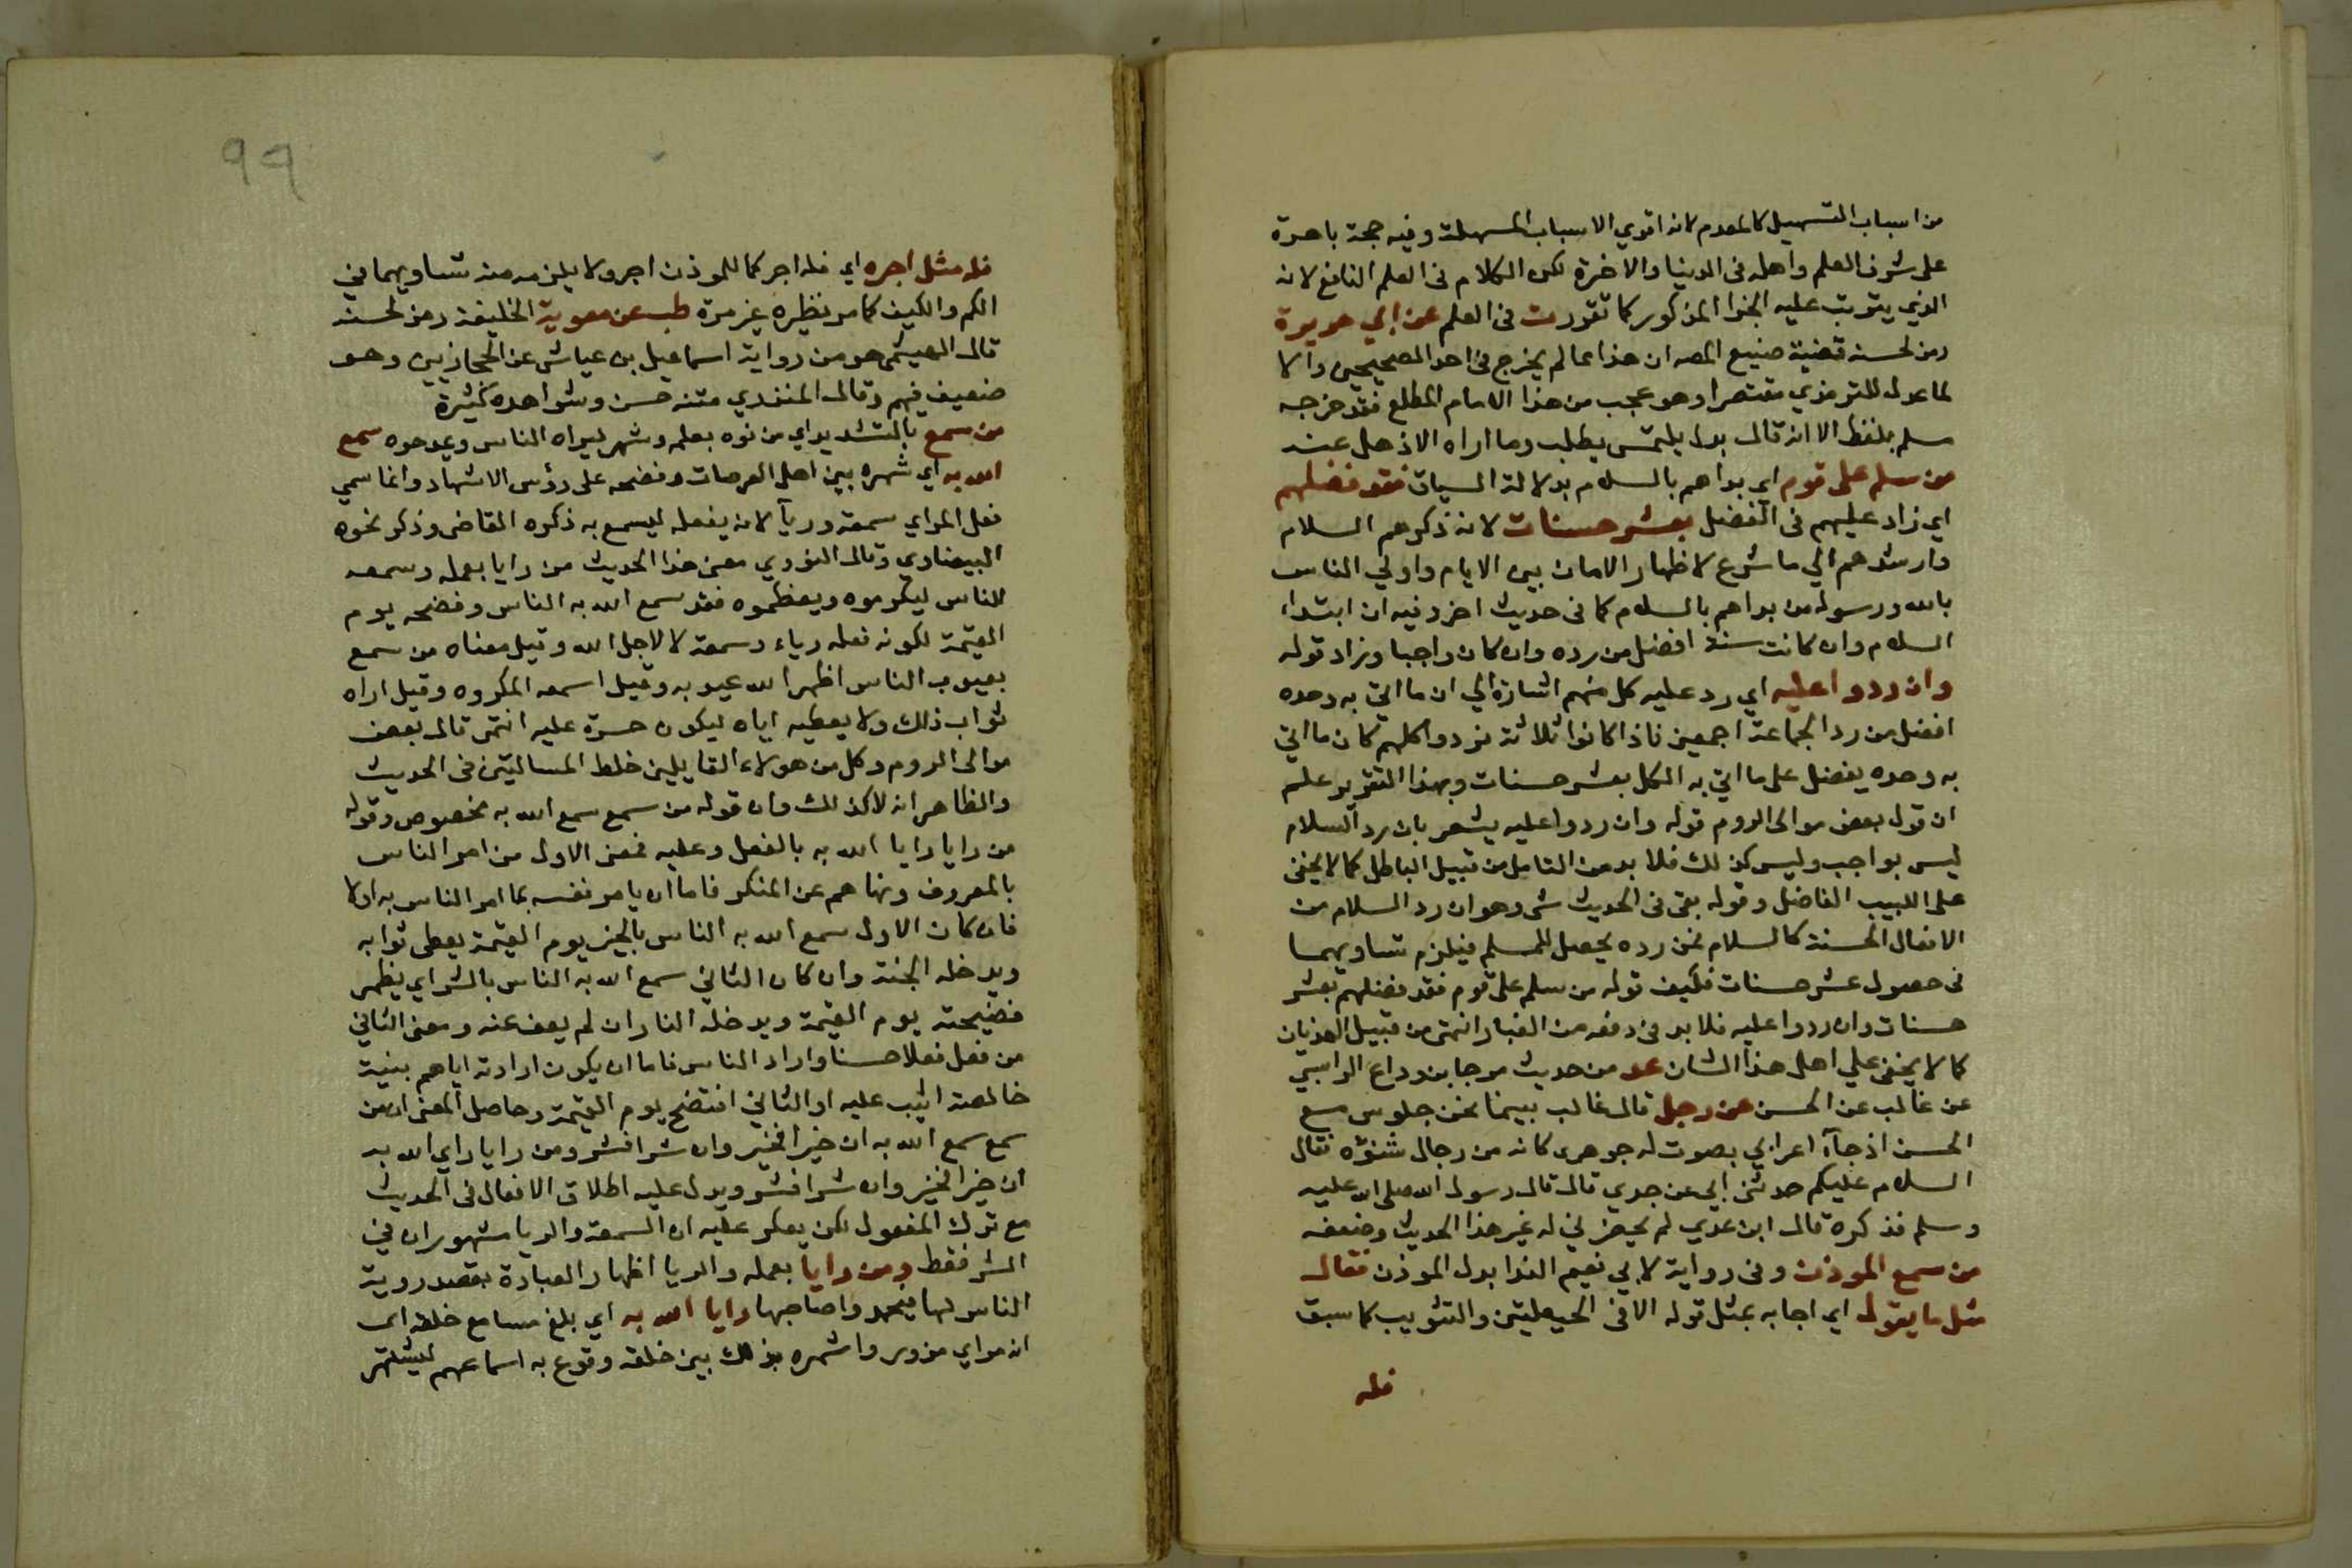 من اسباب التسهيل كالمعدم لانه اقوي الاسباب المسهلة وفيه حجة باهرة
على شرف العلم واهله فى الدنيا والاخرة لكن الكلام فى العلم النافع لانه
الذي يترتب عليه الجزا المذكور كما تقررت فى العلم عن ابي هريرة
رمز لحسنه قضية صنيع المصه ان هذا مما لم يخرج فى احد الصحيحين والا
لما عدل للترمذي مقتصرا وهو عجب من هذا الامام المطلع فقد خرجه
مسلم بلفظ الا انه قال بدل يلتمس يطلب وما اراه الا ذهل عنه
من سلم على قوم اي بداهم بالسلام بدلالة السياق فقد فضلهم
اي زاد عليهم فى الفضل بعشر حسنات لانه ذكرهم السلام
وارشدهم الي ما شرع لاظهار الامان بين الانام واولي الناس
بالله ورسوله من بداهم بالسلام كما فى حديث اخر وفيه ان ابتداء
السلام وان كانت سنة افضل من رده وان كان واجبا وزاد قوله
وان ردوا عليه اي رد عليه كل منهم اشارة الي ان ما اتي به وحده
افضل من رد الجماعة اجمعين فاذا كانوا ثلاثة فردوا كلهم كان ما اتي
به وحده يفضل على ما اتي به الكل بعشر حسنات وبهذا التقرير علم
ان قول بعض موالى الروم قوله وان ردوا عليه يشعر بان رد السلام
ليس بواجب وليس كذلك فلا بد من التامل من قبيل الباطل كما لا يخفى
على اللبيب الفاضل وقوله بقى فى الحديث شى وهو ان رد السلام من
الافعال الحسنة كالسلام فمن رده يحصل للمسلم فيلزم تساويهما
فى حصول عشر حسنات فكيف قوله من سلم على قوم فقد فضلهم بعشر
حسنات وان ردوا عليه فلا بد فى دفعه من الغبار انتهى من قبيل الهذيان
كما لا يخفى علي اهل هذا الشان عد من حديث مرجا بن وداع الراسبي
عن غالب عن الحسن عن رجل قال غالب بينما نحن جلوس مع
الحسن اذ جآء اعرابي بصوت له جوهرى كانه من رجال شنؤه فقال
السلام عليكم حدثنى ابي عن جدي قال قال رسول الله صلى الله عليه
وسلم فذكره قال ابن عدي لم يحضرني له غير هذا الحديث وضعفه
من سمع الموذن وفى رواية لابي نعيم الندا بدل الموذن فقال
مثل ما يقول اي اجابه بمثل قوله الا فى الحيعلتين والتثويب كما سبق
فله
99
فله مثل اجره اي فله اجر كما للموذن اجر ولا يلزم منه تساويهما في
الكم والكيف كما مر نظيره غير مرة طب عن معوية الخليفة رمز لحسنه
قال الهيثمى هو من رواية اسماعيل بن عياش عن الحجازيين وهو
ضعيف فيهم وقال المنذري متنه حسن وشواهده كثيرة
من سمع بالتشديد اي من نوه بعلمه وشهر ليراه الناس ويمدحوه سمع
الله به اي شهره بين اهل العرصات وفضحه على رؤس الاشهاد وانما سمي
فعل المراي سمعة وريآ لانه يفعله ليسمع به ذكره القاضى وذكر نحوه
البيضاوي وقال النووي معنى هذا الحديث من رايا بعمله وسمعه
للناس ليكرموه ويعظموه فقد سمع الله به الناس وفضحه يوم
القيمة لكونه فعله رياء وسمعة لا لاجل الله وقيل معناه من سمع
بعيوب الناس اظهر الله عيوبه وقيل اسمعه المكروه وقيل اراه
ثواب ذلك ولا يعطيه اياه ليكون حسرة عليه انتهى قال بعض
موالى الروم وكل من هولاء القايلين خلط المسالتين فى الحديث
والظاهر انه لا كذلك وان قوله من سمع سمع الله به مخصوص وقوله
من رايا رايا الله به بالفعل وعليه فمعنى الاول من امر الناس
بالمعروف ونهاهم عن المنكر فاما ان يامر نفسه بما امر الناس به اولا
فان كان الاول سمع الله به الناس بالخير يوم القيمة يعطى ثوابه
ويدخله الجنة وان كان الثاني سمع الله به الناس بالشر اي يظهر
فضيحته يوم القيمة ويدخله النار ان لم يعف عنه ومعنى الثاني
من فعل فعلا حسنا واراد الناس فاما ان يكون ارادته اياهم بنية
خالصة اثيب عليه او الثاني افتضح يوم القيمة وحاصل المعنى ان من
سمع سمع الله به ان خيرا فخير وان شرا فشر ومن رايا راي الله به
ان خيرا فخير وان شرا فشر ويدل عليه اطلاق الافعال فى الحديث
مع ترك المفعول لكن يعكر عليه ان السمعة والريا مشهوران في
الشر فقط ومن رايا بعمله والريا اظهار العبادة بقصد روية
الناس لها فيحمدوا صاحبها رايا الله به اي بلغ مسامع خلقه اى
انه مراي مزور واشهره بذلك بين خلقه وقرع به اسماعهم ليشتهر